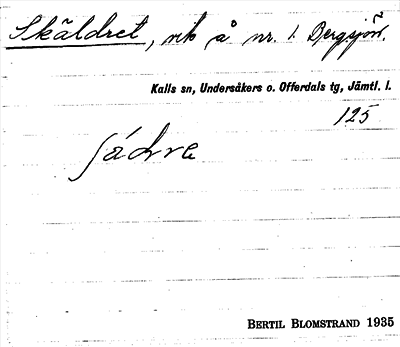 Skäldret, vik å nr. 1. Bergsjön.
Kalls sn, Undersåkers o. Offerdals tg, Jämtl. l.
125
Bertil Blomstrand 1935